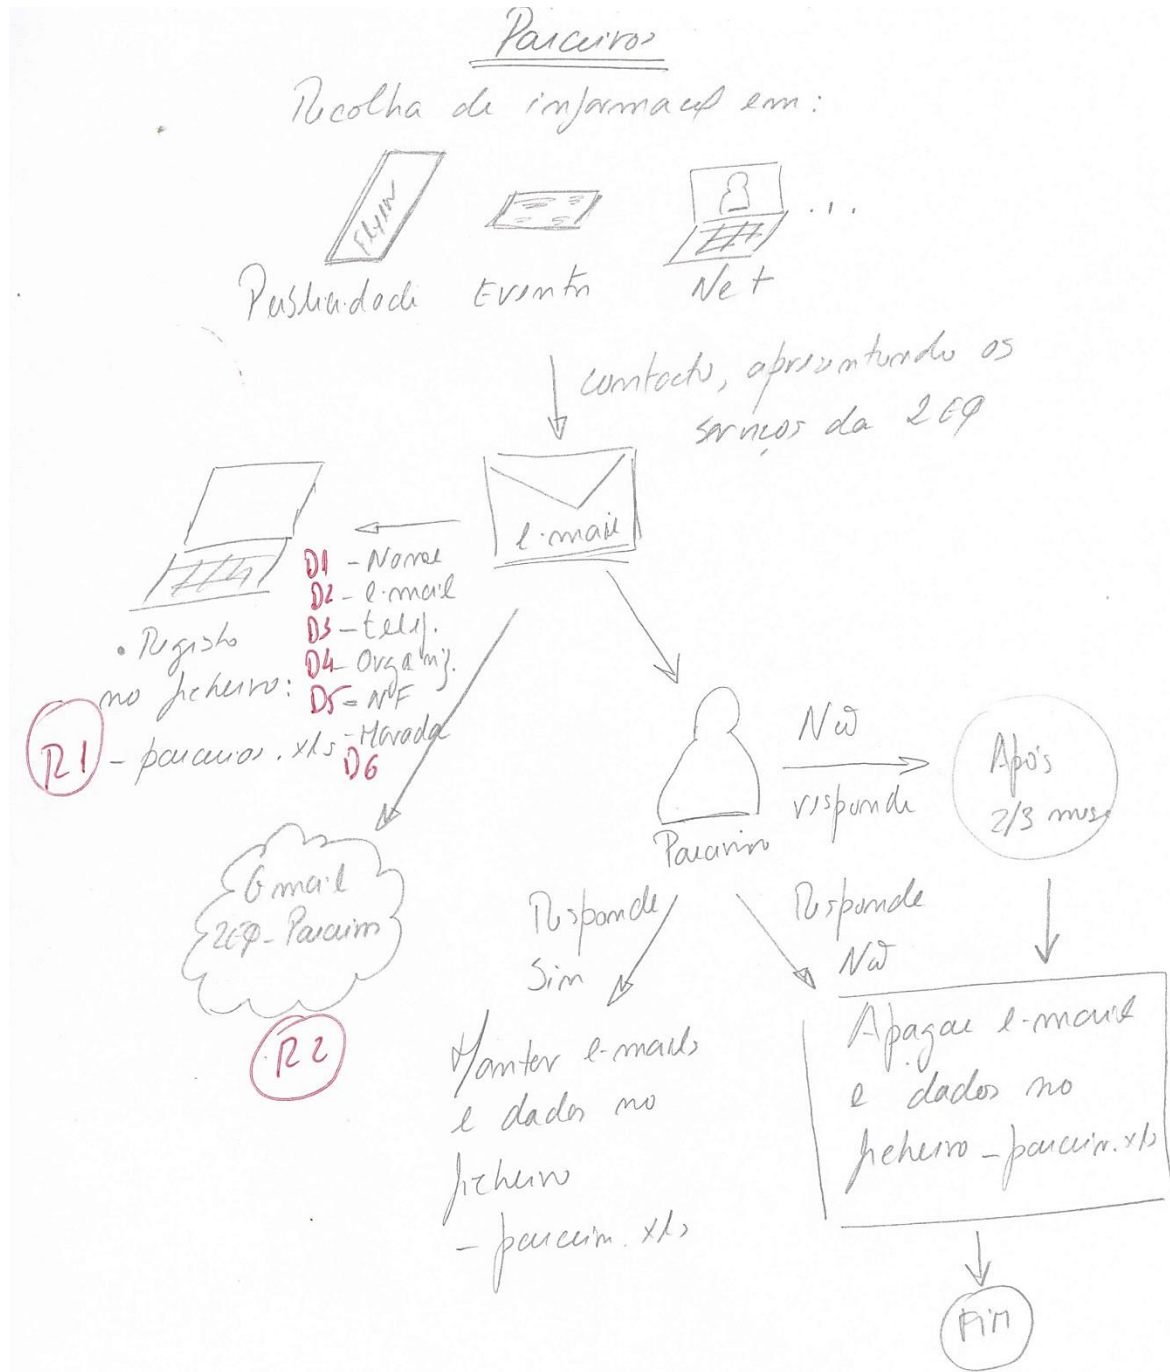 Parceiros
Recolha de informação em:
Flyer
...
Publicidade
Evento
Net
contacto, apresentando os
serviços da
e-mail
D1 - Nome
D2 - e-mail
D3 - telef.
D4 - Organiz.
D5 - NIF
• Registo
no ficheiro:
R1 - parceiros.xls
- Morada
D6
Gmail
Parceiros
R2
Parceiro
Não
responde
Após
2/3 meses
Responde
Sim
Responde
Não
Manter e-mails
e dados no
ficheiro
- parceiros.xls
Apagar e-mail
e dados no
ficheiro - parceiros.xls
FIM